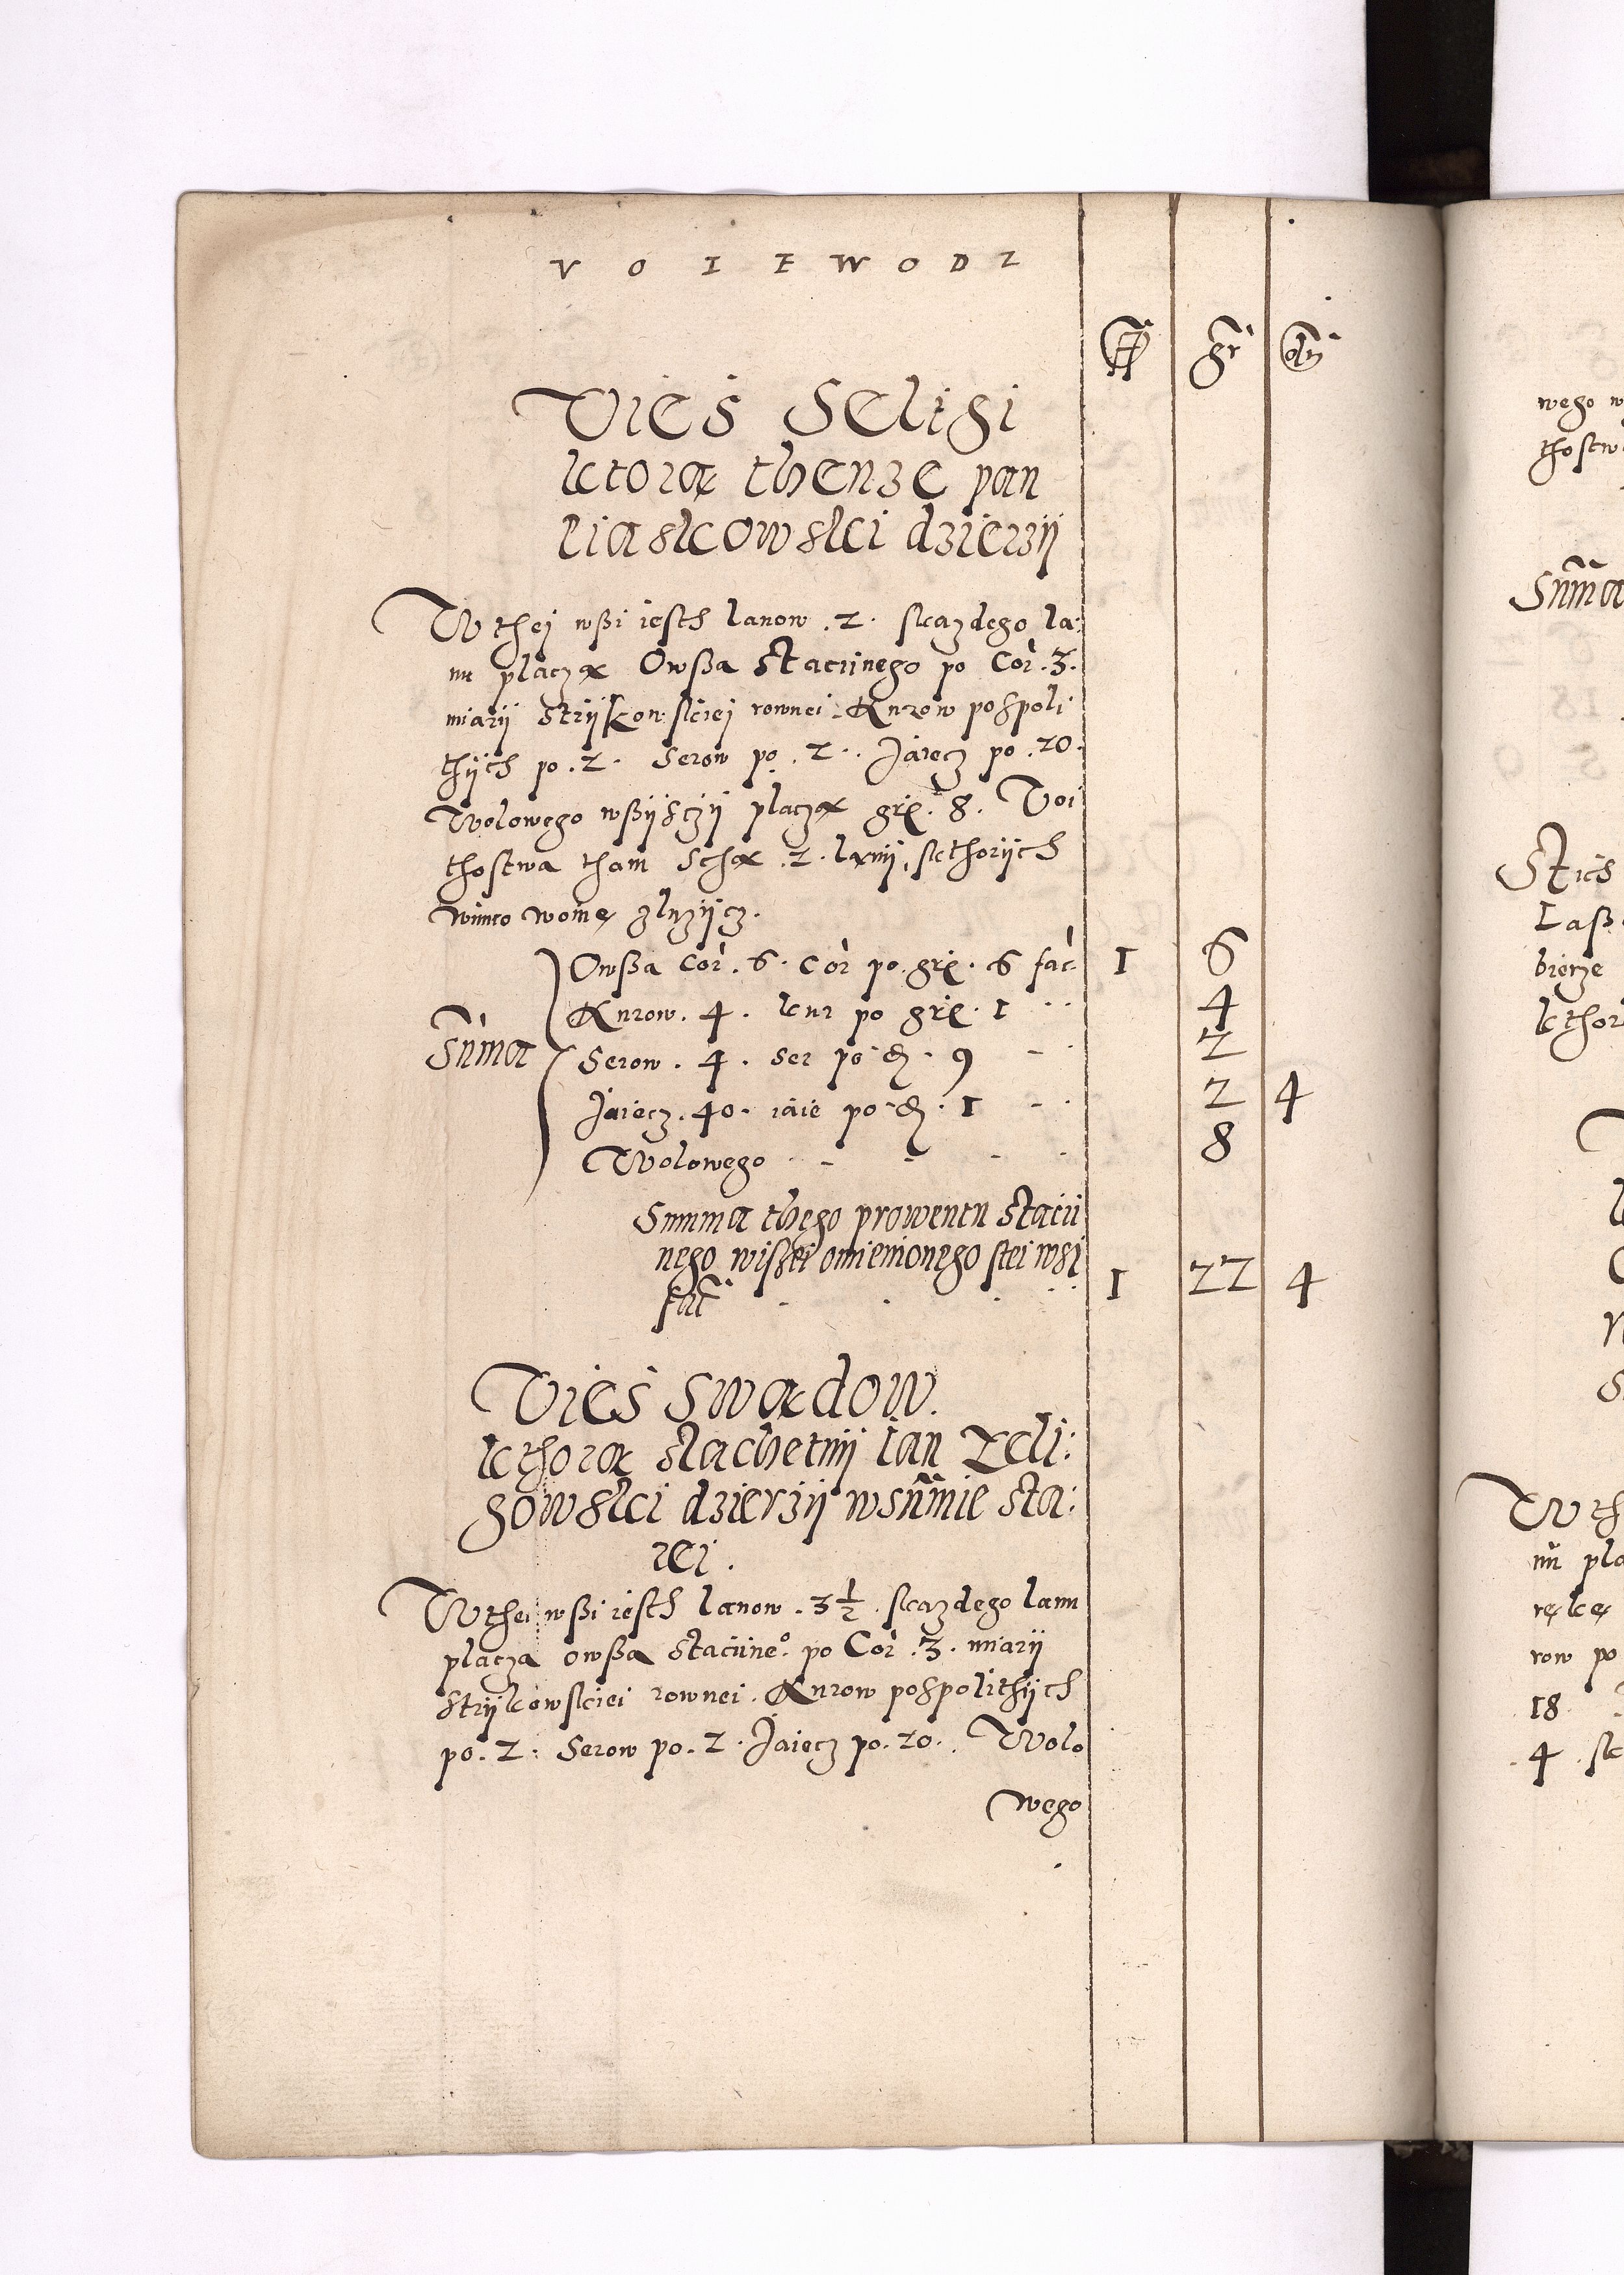 V O I E W O D Z
fl gr dn
Vies Seligi
ktorą thenze pan
liaskowski dzierzij
W thej wßi iesth lanow .2. skazdego la:
nu placzą Owßa staciinego po Cor .3.
miarij Strijkowskiej rownei. Kurow pospoli
thijch po .2. Serow po .2. Jaiecz po .20.
Wolowego wßijsczij placzą grκ. 8. Voi
thostwa tham Sthą .2. lanij, kthorijch
woinę zluzijcz.
Owßa Cor. 6. Cor po gr. 6 fac 1 6
Kurow. 4. kur po gr. 1 4
Suma
Serow. 4. ser po d. 9 2
Jaiecz. 40. iaie po d. 1 2 4
Wolowego 8
Summa thego prowentu Stacii
nego wissei omienionego stei wsi
fac 1 22 4
Vies Swądow.
kthorą slachetnij Ian Zeli:
gowski dzierzij wsum̃ie sta:
rei.
Wthei wßi iesth lanow .3 1/2. skazdego lanu
placza owßa staciine° po Cor .3. miarij
Strijkowskiei rownei. Kurow pospolithijch
po .2. Serow po .2. Jaiecz po .20. Wolo
wego
wego
thostw
Sum̃a
18
5 9
Stich
Laß
bierze
kthor
W th
nu pla
rękę
row po
18
4. sk